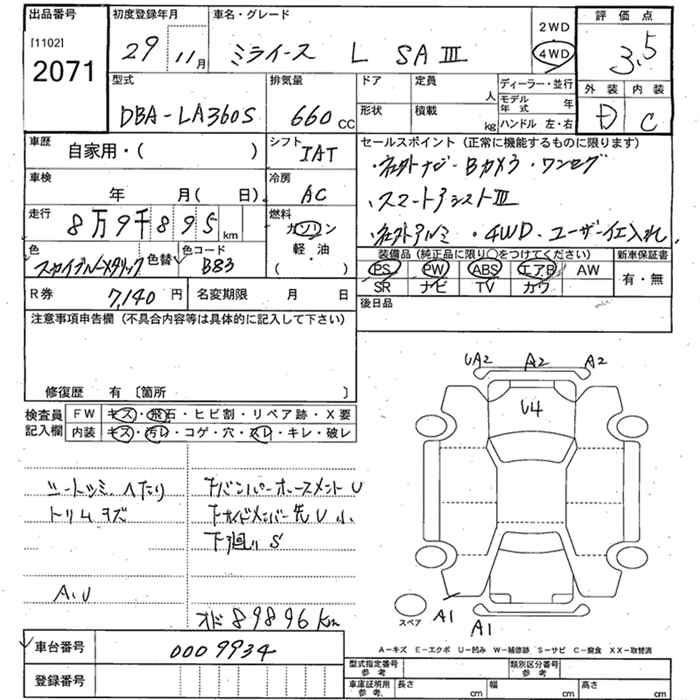 出品番号 初度登録年月 車名・グレード 評価点
[1102]
2071
29 11月 ミライース L SAⅢ
2WD
4WD
3.5
外装 内装
D C
型式 排気量 ドア 定員 人 ディーラー・並行
DBA-LA360S 660 CC 形状 積載 kg モデル年式 年
ハンドル 左・右
車歴 シフト セールスポイント(正常に機能するものに限ります)
自家用・( ) IAT
・社外ナビ・Bカメラ・ワンセグ
車検 冷房
年 月( 日) AC
・スマートアシストⅢ
走行 燃料
8万9千895km ガソリン
・社外アルミ ・4WD・ユーザー仕入れ
軽・油
( )
色 色替 色コード
スカイブルーメタリック B83
装備品(純正品に限り○をつけてください) 新車保証書
PS PW ABS エアB AW 有・無
SR ナビ TV カワ
R券 7,140円 名変期限 月 日
後日品
注意事項申告欄(不具合内容等は具体的に記入して下さい)
修復歴 有〔箇所 〕
検査員記入欄
FW キズ・飛石・ヒビ割・リペア跡・X要
内装 キズ・汚レ・コゲ・穴・スレ・キレ・破レ
UA2 A2 A2
U4
シートシミ ヘたり
トリムキズ
A.U
下バンパーホースメントU
下サイドメンバー先U小
下廻りS
オド89896Km
スペア A1 A1
A-キズ E-エクボ U-凹み W-補修跡 S-サビ C-腐食 XX-取替済
車台番号 0009934
登録番号
型式指定番号 参考 類別区分番号 参考
車庫証明用 参考 長さ cm 幅 cm 高さ cm